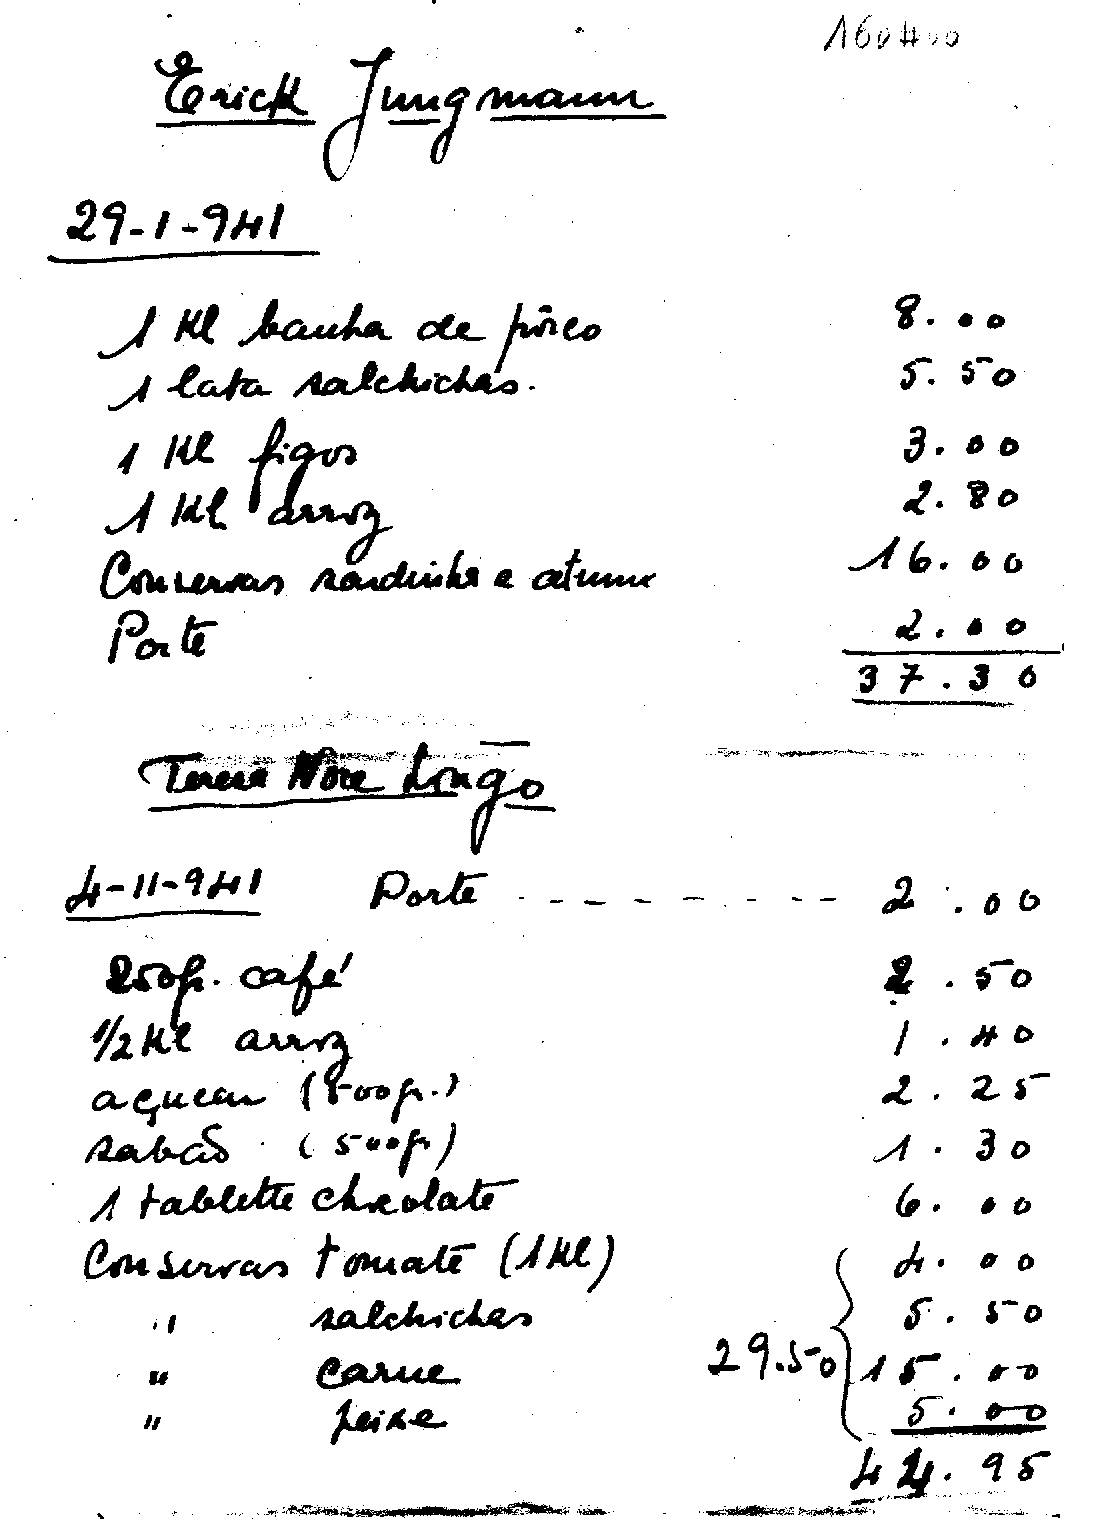 160$00
Erick Jungmann
29-1-941
1 Kl banha de pôrco 8.00
1 lata salchichas. 5.50
1 Kl figos 3.00
1 Kl arroz 2.80
Conservas sardinha e atum 16.00
Porte 2.00
37.30
Teresa Noce Longo
4-11-941 Porte - - - - - - - - 2.00
250gr. café 2.50
1/2 Kl arroz 1.40
açucar (500gr.) 2.25
sabão (500gr) 1.30
1 tablette chocolate 6.00
Conservas tomate (1Kl) 4.00
" salchichas 5.50
" carne 29.50 15.00
" peixe 5.00
44.95